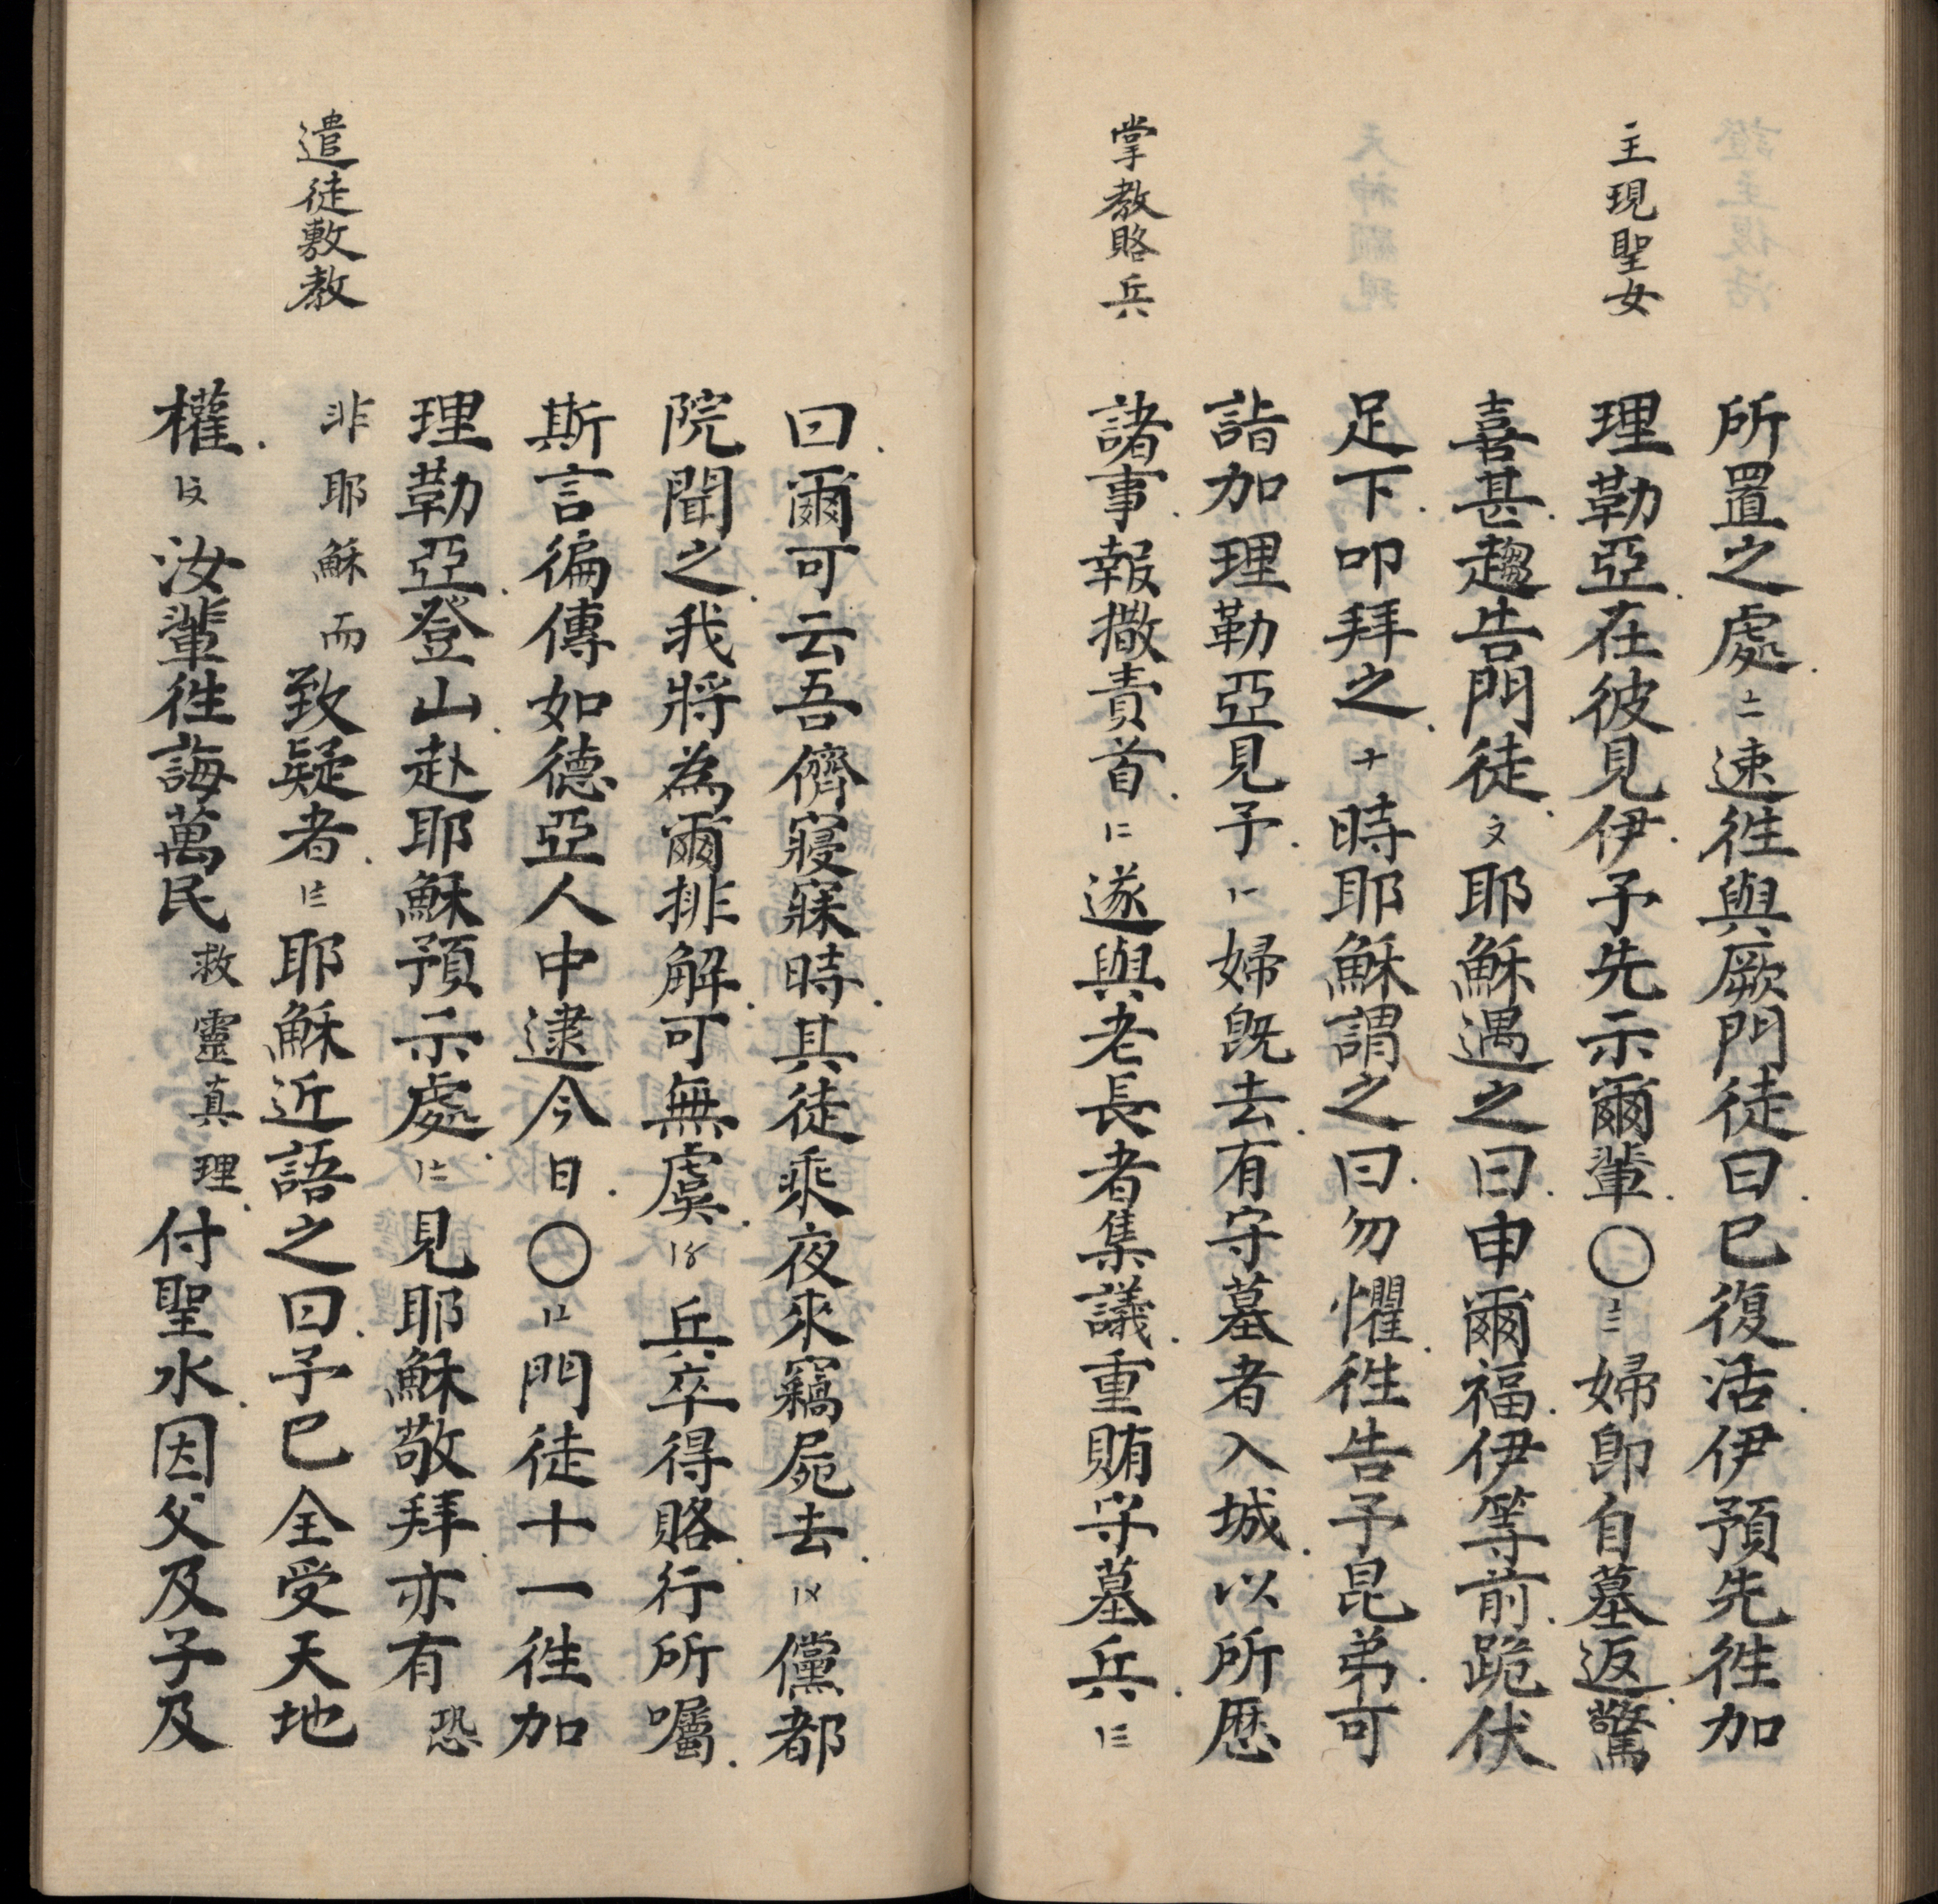 主現聖女
所置之處〧速徃與厥門徒曰巳復活伊預先徃加
理勒亞在彼見伊予先示爾輩〇〨婦卽自墓返驚
喜甚趨告門徒〩耶穌遇之曰申爾福伊等前跪伏
足下叩拜之十時耶穌謂之曰勿懼徃告予昆弟可
詣加理勒亞見予〡一婦旣去有守墓者入城以所歴
掌教賂兵
諸事報撒責首〡二遂與老長者集議重賄守墓兵〡三
曰爾可云吾儕寢寐時其徒乘夜來竊屍去〡〤儻都
院聞之我將為爾排解可無虞〡〥兵卒得賂行所囑
斯言徧傳如德亞人中逮今日〇〡〦門徒十一徃加
理勒亞登山赴耶穌預示處〡〧見耶穌敬拜亦有恐
遣徒敷教
非耶穌而致疑者〡〨耶穌近語之曰予巳全受天地
權〡〩汝輩徃誨萬民救靈真理付聖水因父及子及